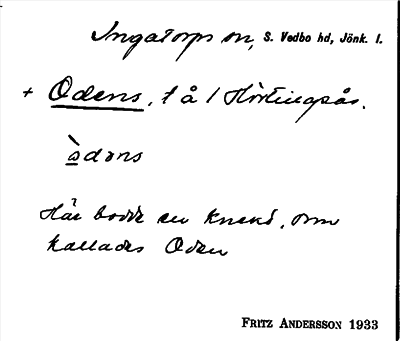 Ingatorps sn, S. Vedbo hd, Jönk. l.
+ Odens, t å 1 Hörlingsås.
òdəns
Här bodde en knekt, som
kallades Oden
FRITZ ANDERSSON 1933